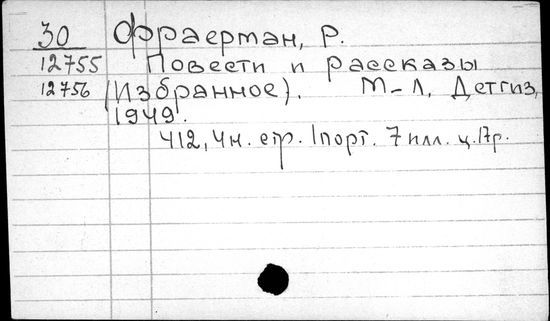 30 Фраерман, Р.
12755 Повести и рассказы
12756 (Избранное). М-Л, Детгиз,
1949.
412, 4н. стр. 1 порт. 7 илл. ц. 17р.